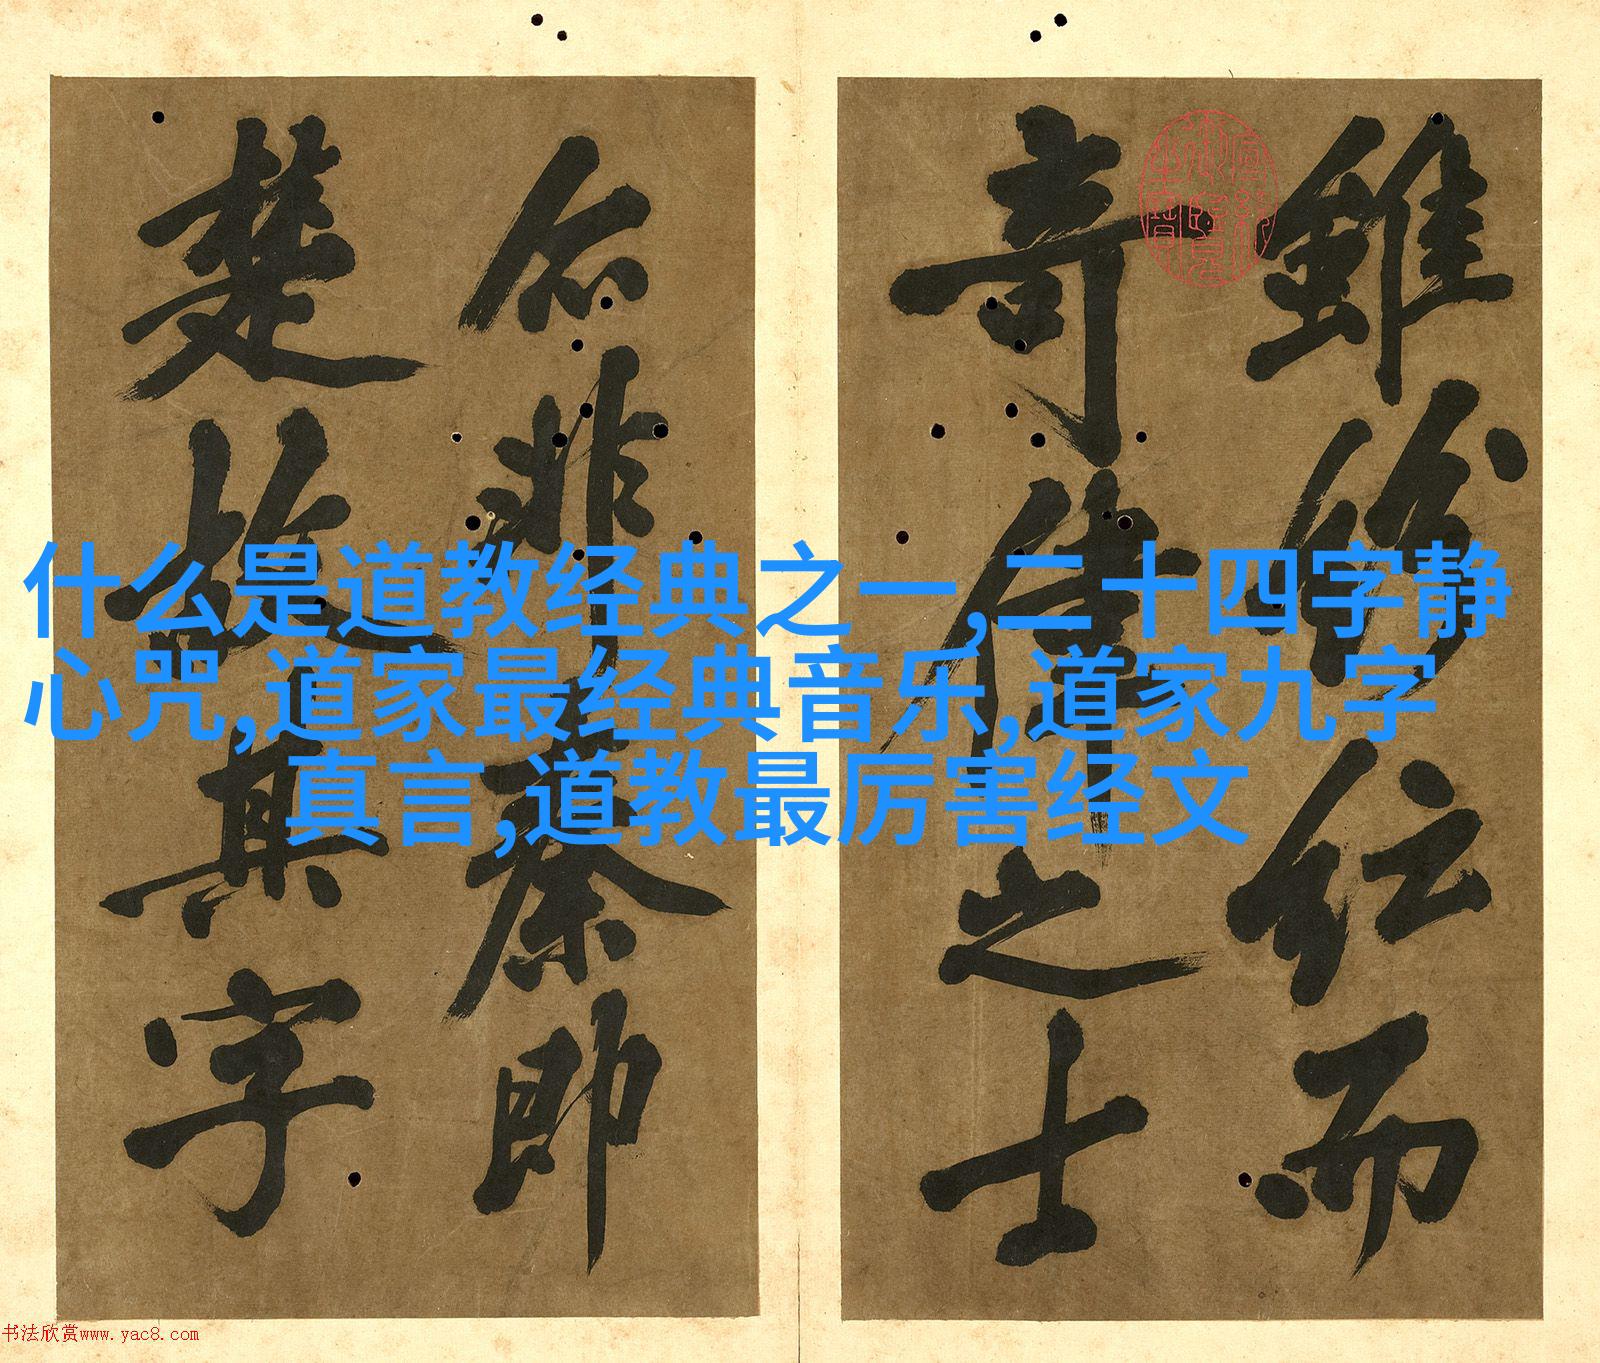 雖紛紜而
奇偉之士
非秦即
楚故其字
什么是道教经典之一,二十四字静
心咒,道家最经典音乐,道家九字
真言,道教最厉害经文
书法欣赏www.yac8.com